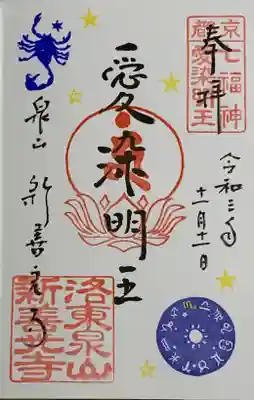 京七福神
都愛染明王
奉拝
令和三年
十一月十一日
愛染明王
泉山 新善光寺
洛東泉山
新善光寺